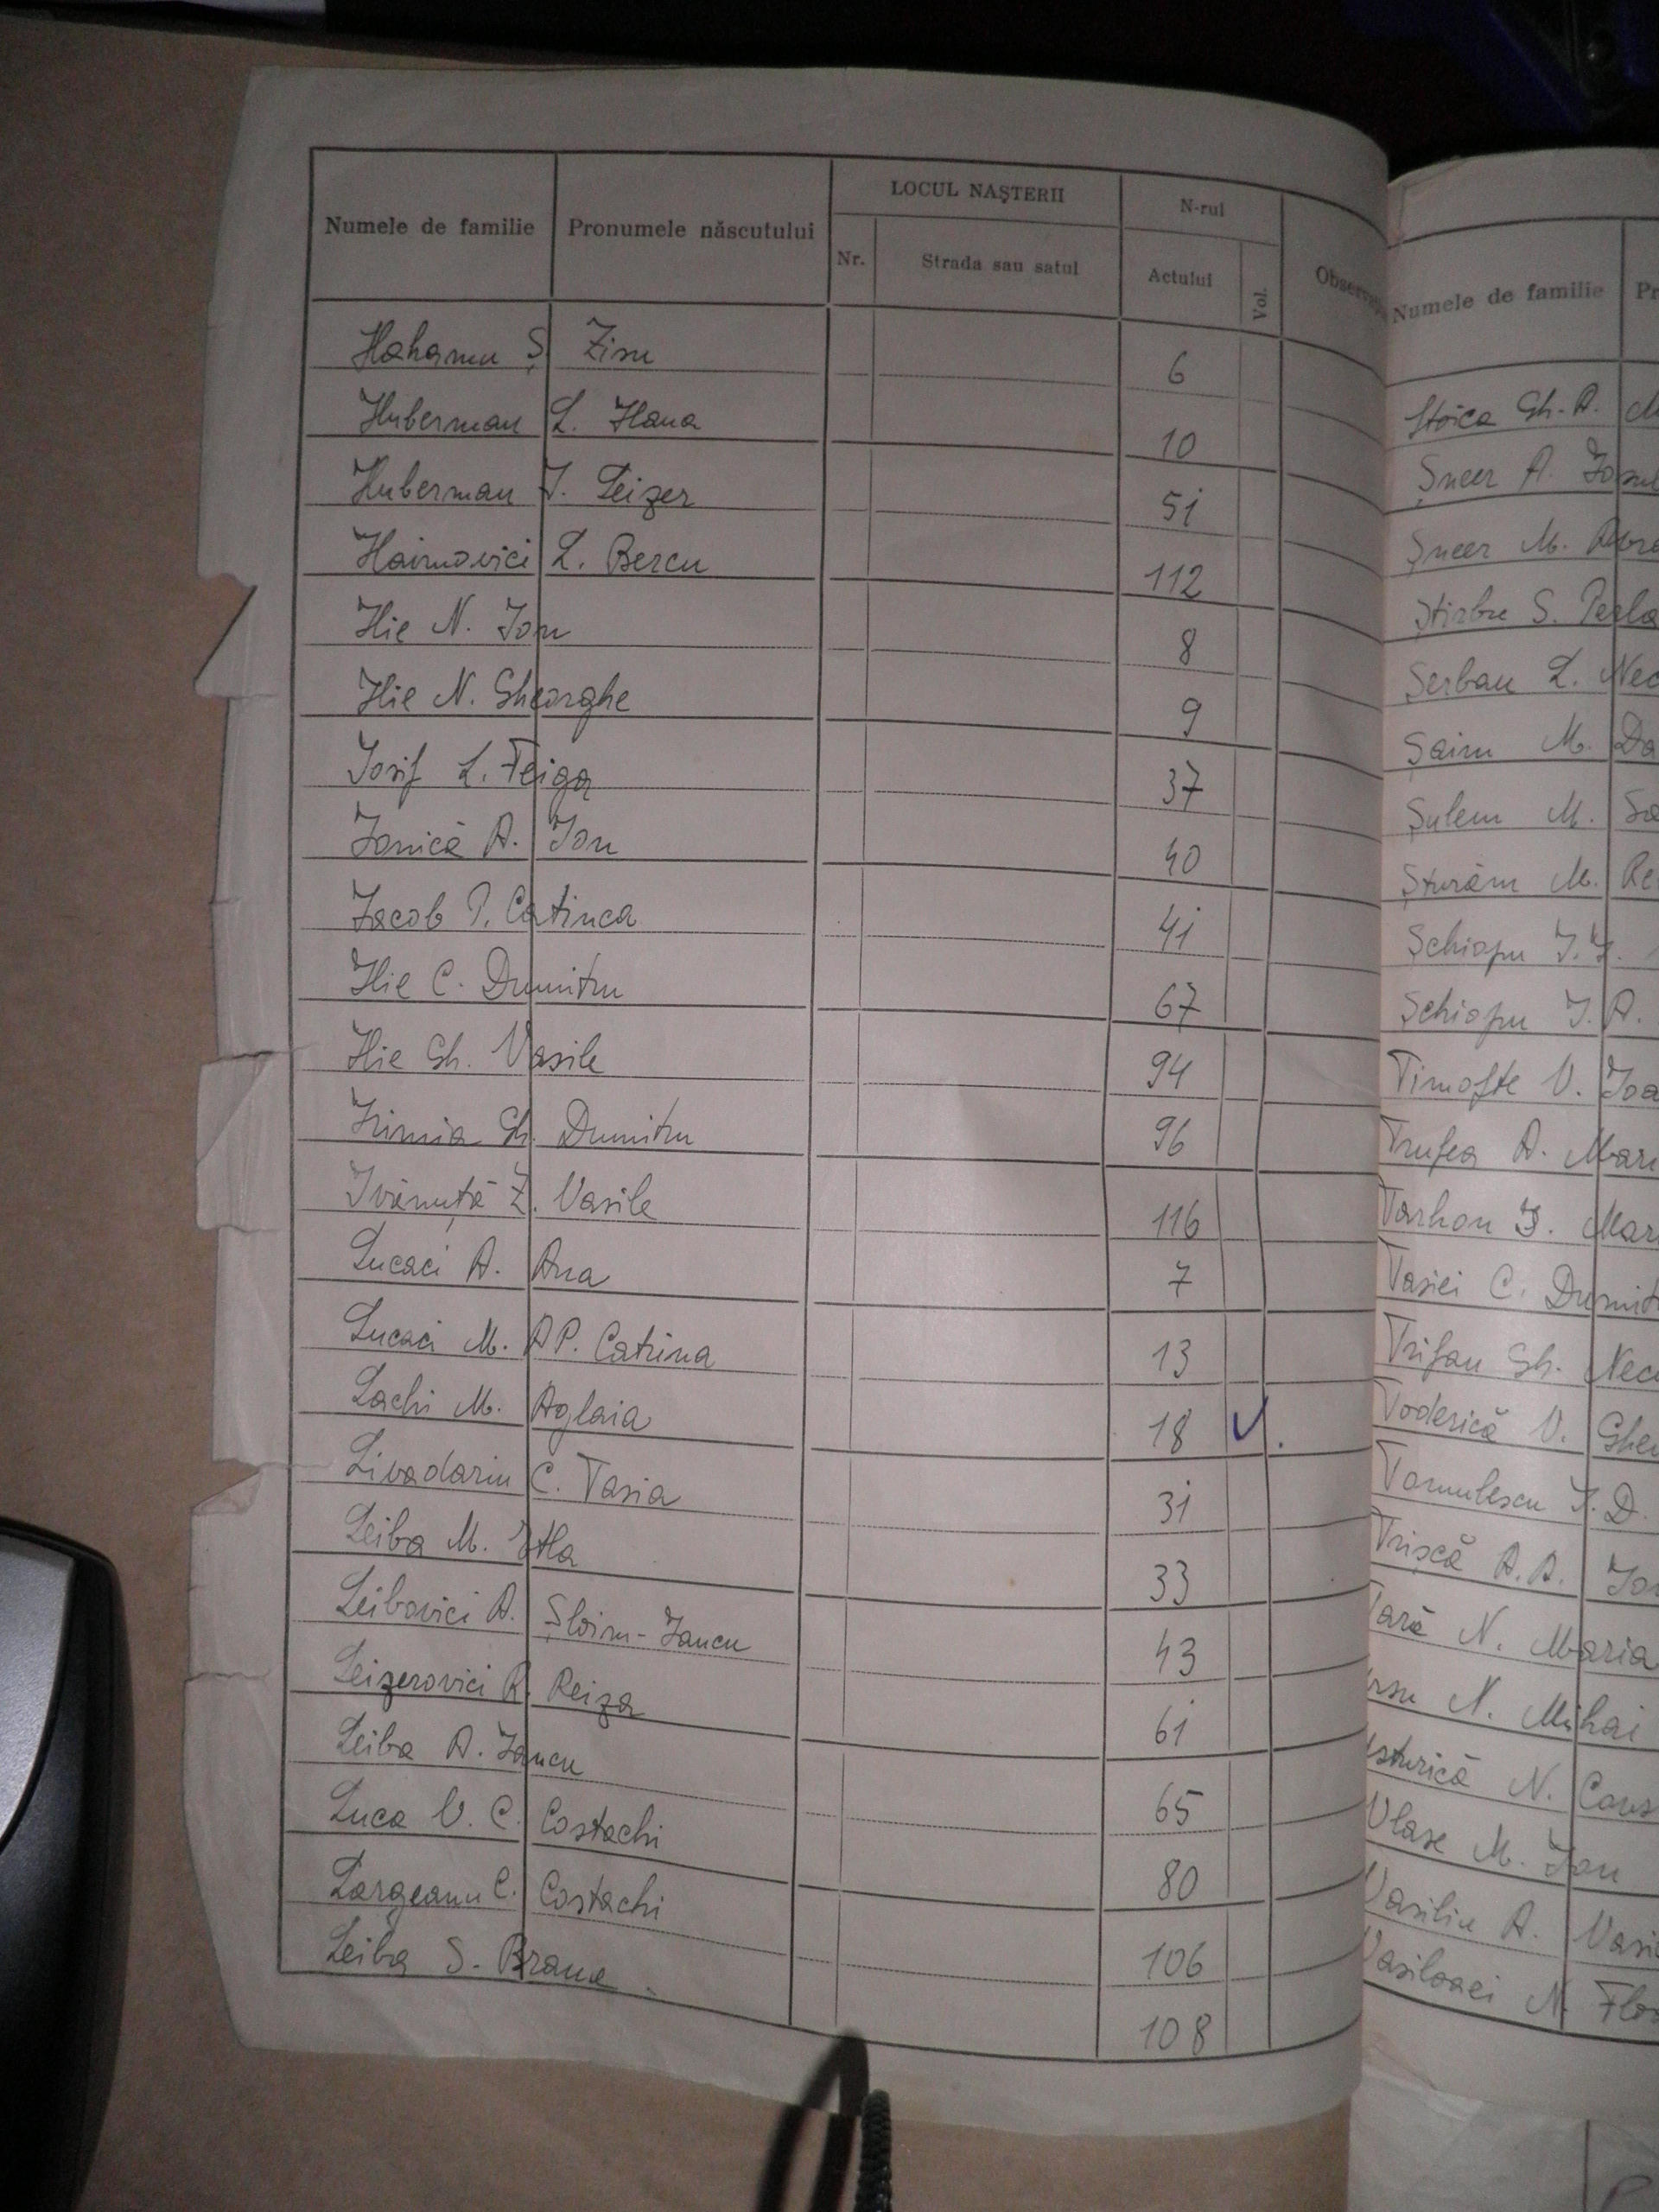 Numele de familie Pronumele născutului LOCUL NAŞTERII N-rul
Nr. Strada sau satul Actului Vol.
Hahamu Ș Zisu 6
Huberman L. Hana 10
Huberman I. Leizer 51
Haimovici L. Bercu 112
Ilie N. Ion 8
Ilie N. Gheorghe 9
Iosif L. Feiga 37
Ionică A. Ion 40
Iacob P. Catinca 41
Ilie C. Dumitru 67
Ilie Gh. Vasile 94
Irimia Gh. Dumitru 96
Ivănuță Z. Vasile 116
Lucaci A. Ana 7
Lucaci M. AP. Catrina 13
Lachi M. Aglaia 18
Livadariu C. Tasia 31
Leiba M. Itla 33
Leibovici A. Șloim-Iancu 43
Leizerovici R. Reiza 61
Leiba A. Iancu 65
Luca V. C. Costachi 80
Largeanu C. Costachi 106
Leiba S. Brana 108
Numele de familie
Stoica Gh. A.
Șneer A.
Șneer M.
Știrbu S. Perla
Șerban L.
Șaim M.
Șulem M.
Șturăm M.
Șchiopu I. I.
Șchiopu I. A.
Timofte V.
Trufea A.
Tarhon I.
Vasiei C.
Trifan Gh.
Toderică V.
Tomulescu I. D.
Trișcă A. A.
N. Maria
N. Mihai
N.
Vlase M. Ion
Vasiliu A.
Vasiloaei N.